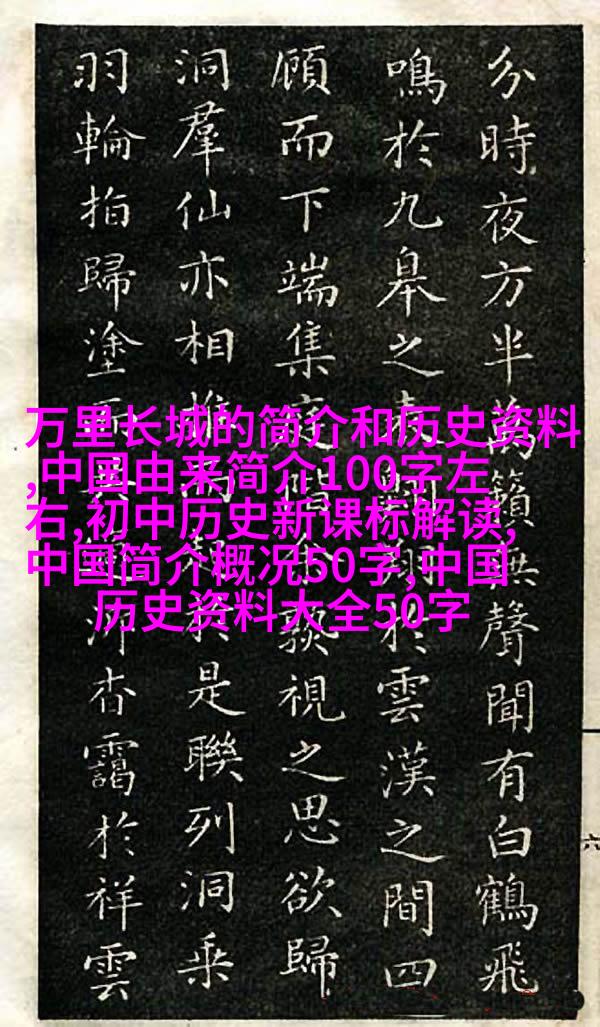 分時夜方半萬籟無聲聞有白鶴飛
鳴於九皋之翔於雲漢之間四
顧而下端集庭階余歎視之思欲歸
洞羣仙亦相推於是聯列洞乘
羽輪指歸塗而杳靄於祥雲
六
万里长城的简介和历史资料
,中国由来简介100字左
右,初中历史新课标解读,
中国简介概况50字,中国
历史资料大全50字